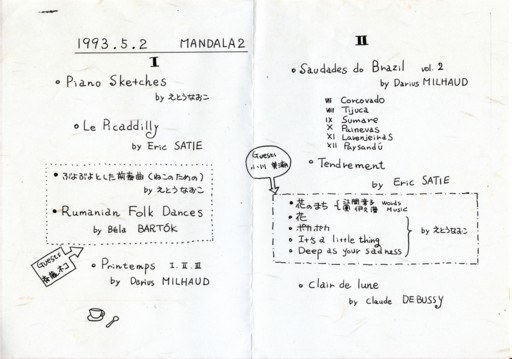 1993.5.2 MANDALA2
I
• Piano Sketches
by えとうなおこ
• Le Picaddilly
by Eric SATIE
• ぶよぶよとした前奏曲(ねこのための)
by えとうなおこ
• Rumanian Folk Dances
by Béla BARTÓK
Guests
ネコ
• Printemps I. II. III
by Darius MILHAUD
II
• Saudades do Brazil vol. 2
by Darius MILHAUD
VII Corcovado
VIII Tijuca
IX Sumare
X Painevas
XI Laranjeiras
XII Paysandú
Guests
小川
• Tendrement
by Eric SATIE
• 花のまち { 江間章子 words
團 伊玖磨 Music
• 花
• ポカポカ
• It's a little thing
• Deep as your sadness
by えとうなおこ
• Clair de lune
by Claude DEBUSSY